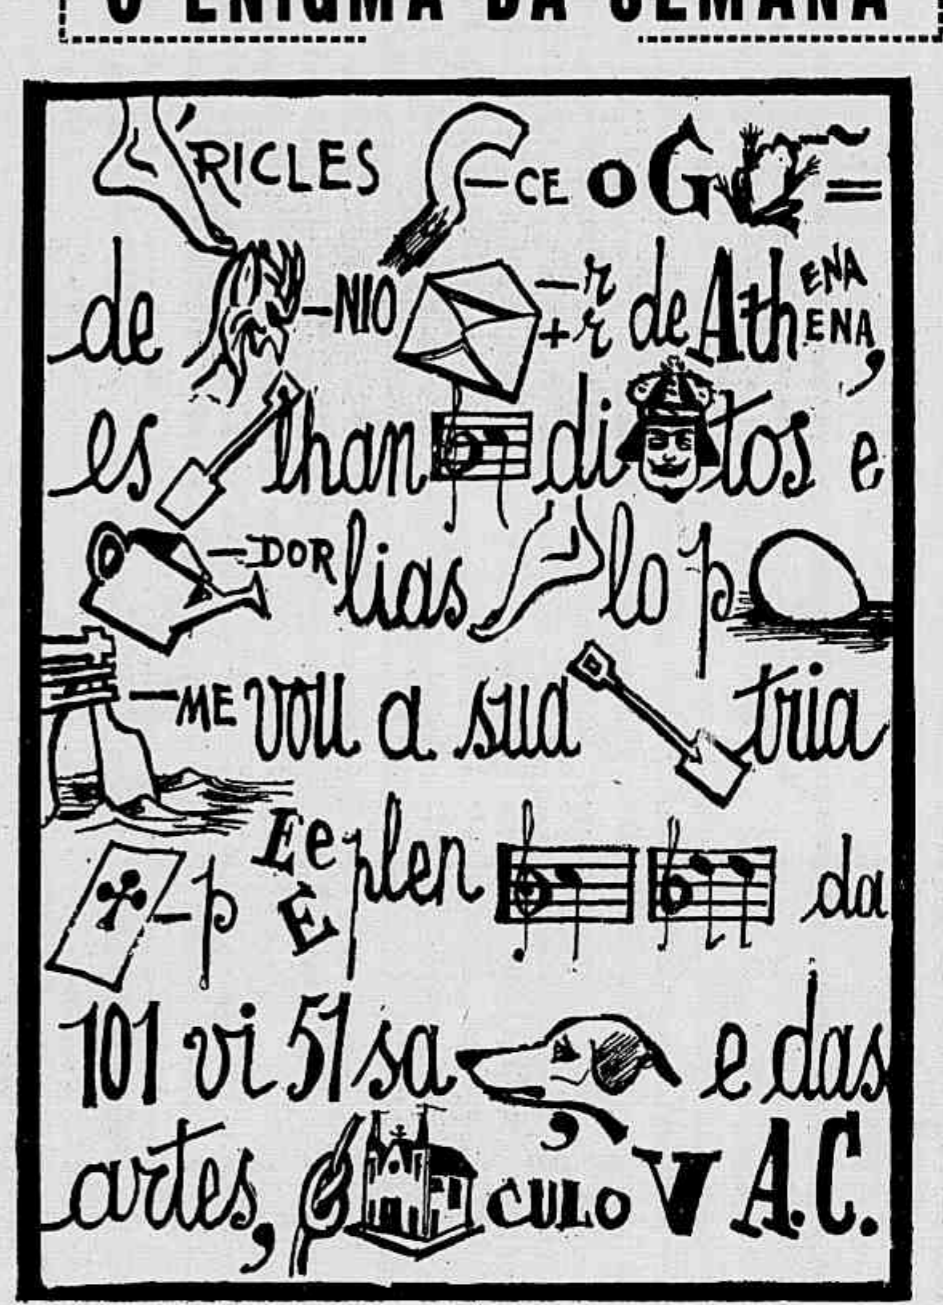 O ENIGMA DA SEMANA
'RICLES –CE O G ~ =
de –NIO –r +r de Ath ENA ENA,
es lhan di tos e
–DOR lias lo p
–ME vou a sua tria
–p E e E plen da
101 vi 51 sa e das
artes, CULO V A.C.